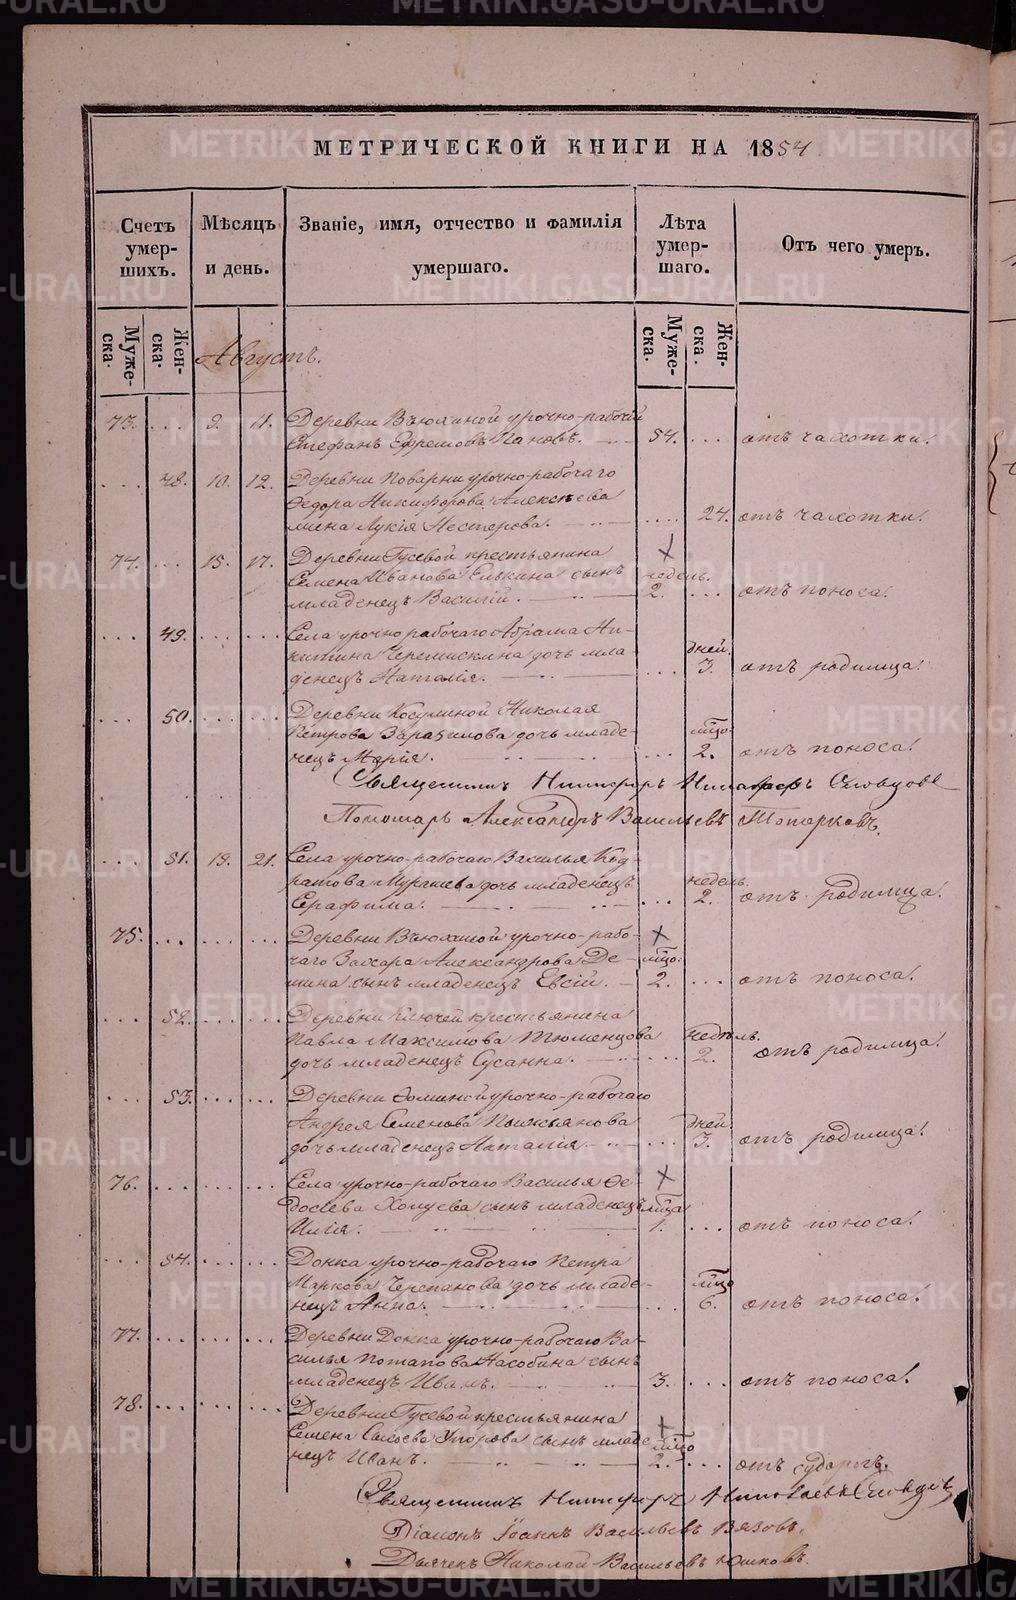 МЕТРИЧЕСКОЙ КНИГИ НА 1854
Счетъ умер-шихъ.
Мѣсяцъ и день.
Званіе, имя, отчество и фамилія умершаго.
Лѣта умер-шаго.
Отъ чего умеръ.
Муже-ска.
Жен-ска.
Муже-ска.
Жен-ска.
Августъ.
73. 9. 11. Деревни Вьюхиной урочно-рабочій
Стефанъ Ефремовъ Пановъ. 54. отъ чахотки.
48. 10. 12. Деревни Поварни урочно-рабочаго
Ѳедора Никифорова Алексѣева
жена Лукія Нестерова. 24. отъ чахотки.
74. 15. 17. Деревни Гусевой крестьянина
Семена Иванова Елькина сынъ недѣль.
младенецъ Василій. 2. отъ поноса.
49. Села урочно рабочаго Абрама Ни-
китина Черемискина дочь мла- дней.
денецъ Наталія. 3. отъ родимца.
50. Деревни Косулиной Николая
Петрова дочь младе- мцо.
нецъ Марія. 2. отъ поноса.
Священникъ Никифоръ
Пономарь Александръ Васильевъ Топорковъ.
51. 19. 21. Села урочно-рабочаго Василья Код-
ратова дочь младенецъ недель.
Серафима. 2. отъ родимца.
75. Деревни Вьюхиной урочно-рабо-
чаго Захара Александрова Де- мцо.
мина сынъ младенецъ Евсій. 2. отъ поноса.
52. Деревни Ключей крестьянина
Павла Максимова Тюменцова недѣль.
дочь младенецъ Сусанна. 2. отъ родимца.
53. Деревни урочно-рабочаго
Андрея Семенова дней.
дочь младенецъ Наталія. 3. отъ родимца.
76. Села урочно-рабочаго Василья Ѳе-
досѣева сынъ младенецъ мцца
Илія. 1. отъ поноса.
54. Донка урочно-рабочаго Петра
Маркова Черепанова дочь младе- мцо
нецъ Анна. 6. отъ поноса.
77. Деревни Донка урочно-рабочаго Ва-
силья Потапова Насобина сынъ
младенецъ Иванъ. 3. отъ поноса.
78. Деревни Гусевой крестьянина
Семена сынъ младе- мцо
нецъ Иванъ. 2. отъ судорогъ.
Священникъ Никифоръ
Діаконъ Іоаннъ Васильевъ Вязовъ.
Дьячекъ Николай Васильевъ Юшковъ.
METRIKI.GASO-URAL.RU